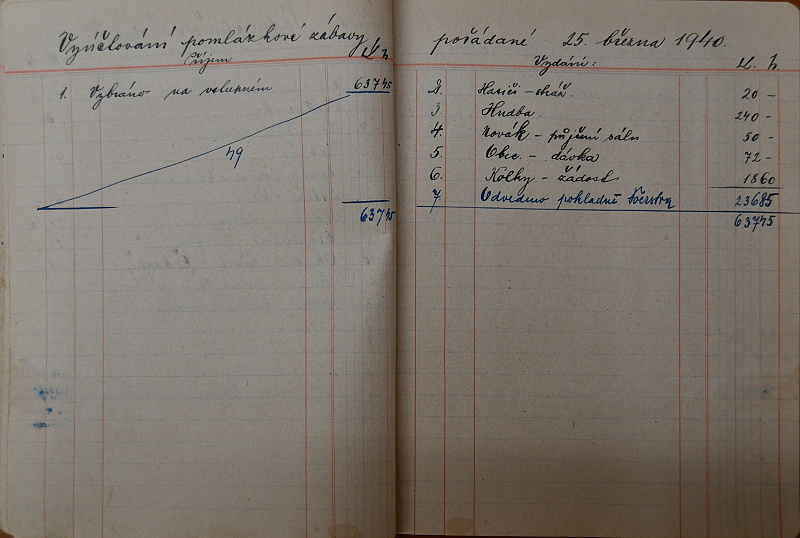 Vyúčtování pomlázkové zábavy
Příjem K. h.
1. Vybráno na vstupném 63745
49
63745
pořádané 25. března 1940.
Vydání: K. h.
2. Hasiči - stráž. 20 -
3. Hudba. 240 -
4. Novák - půjčení sálu 50 -
5. Obec. - dávka 72 -
6. Kolky - žádost 1860
7. Odvedeno pokladně 23685
63745